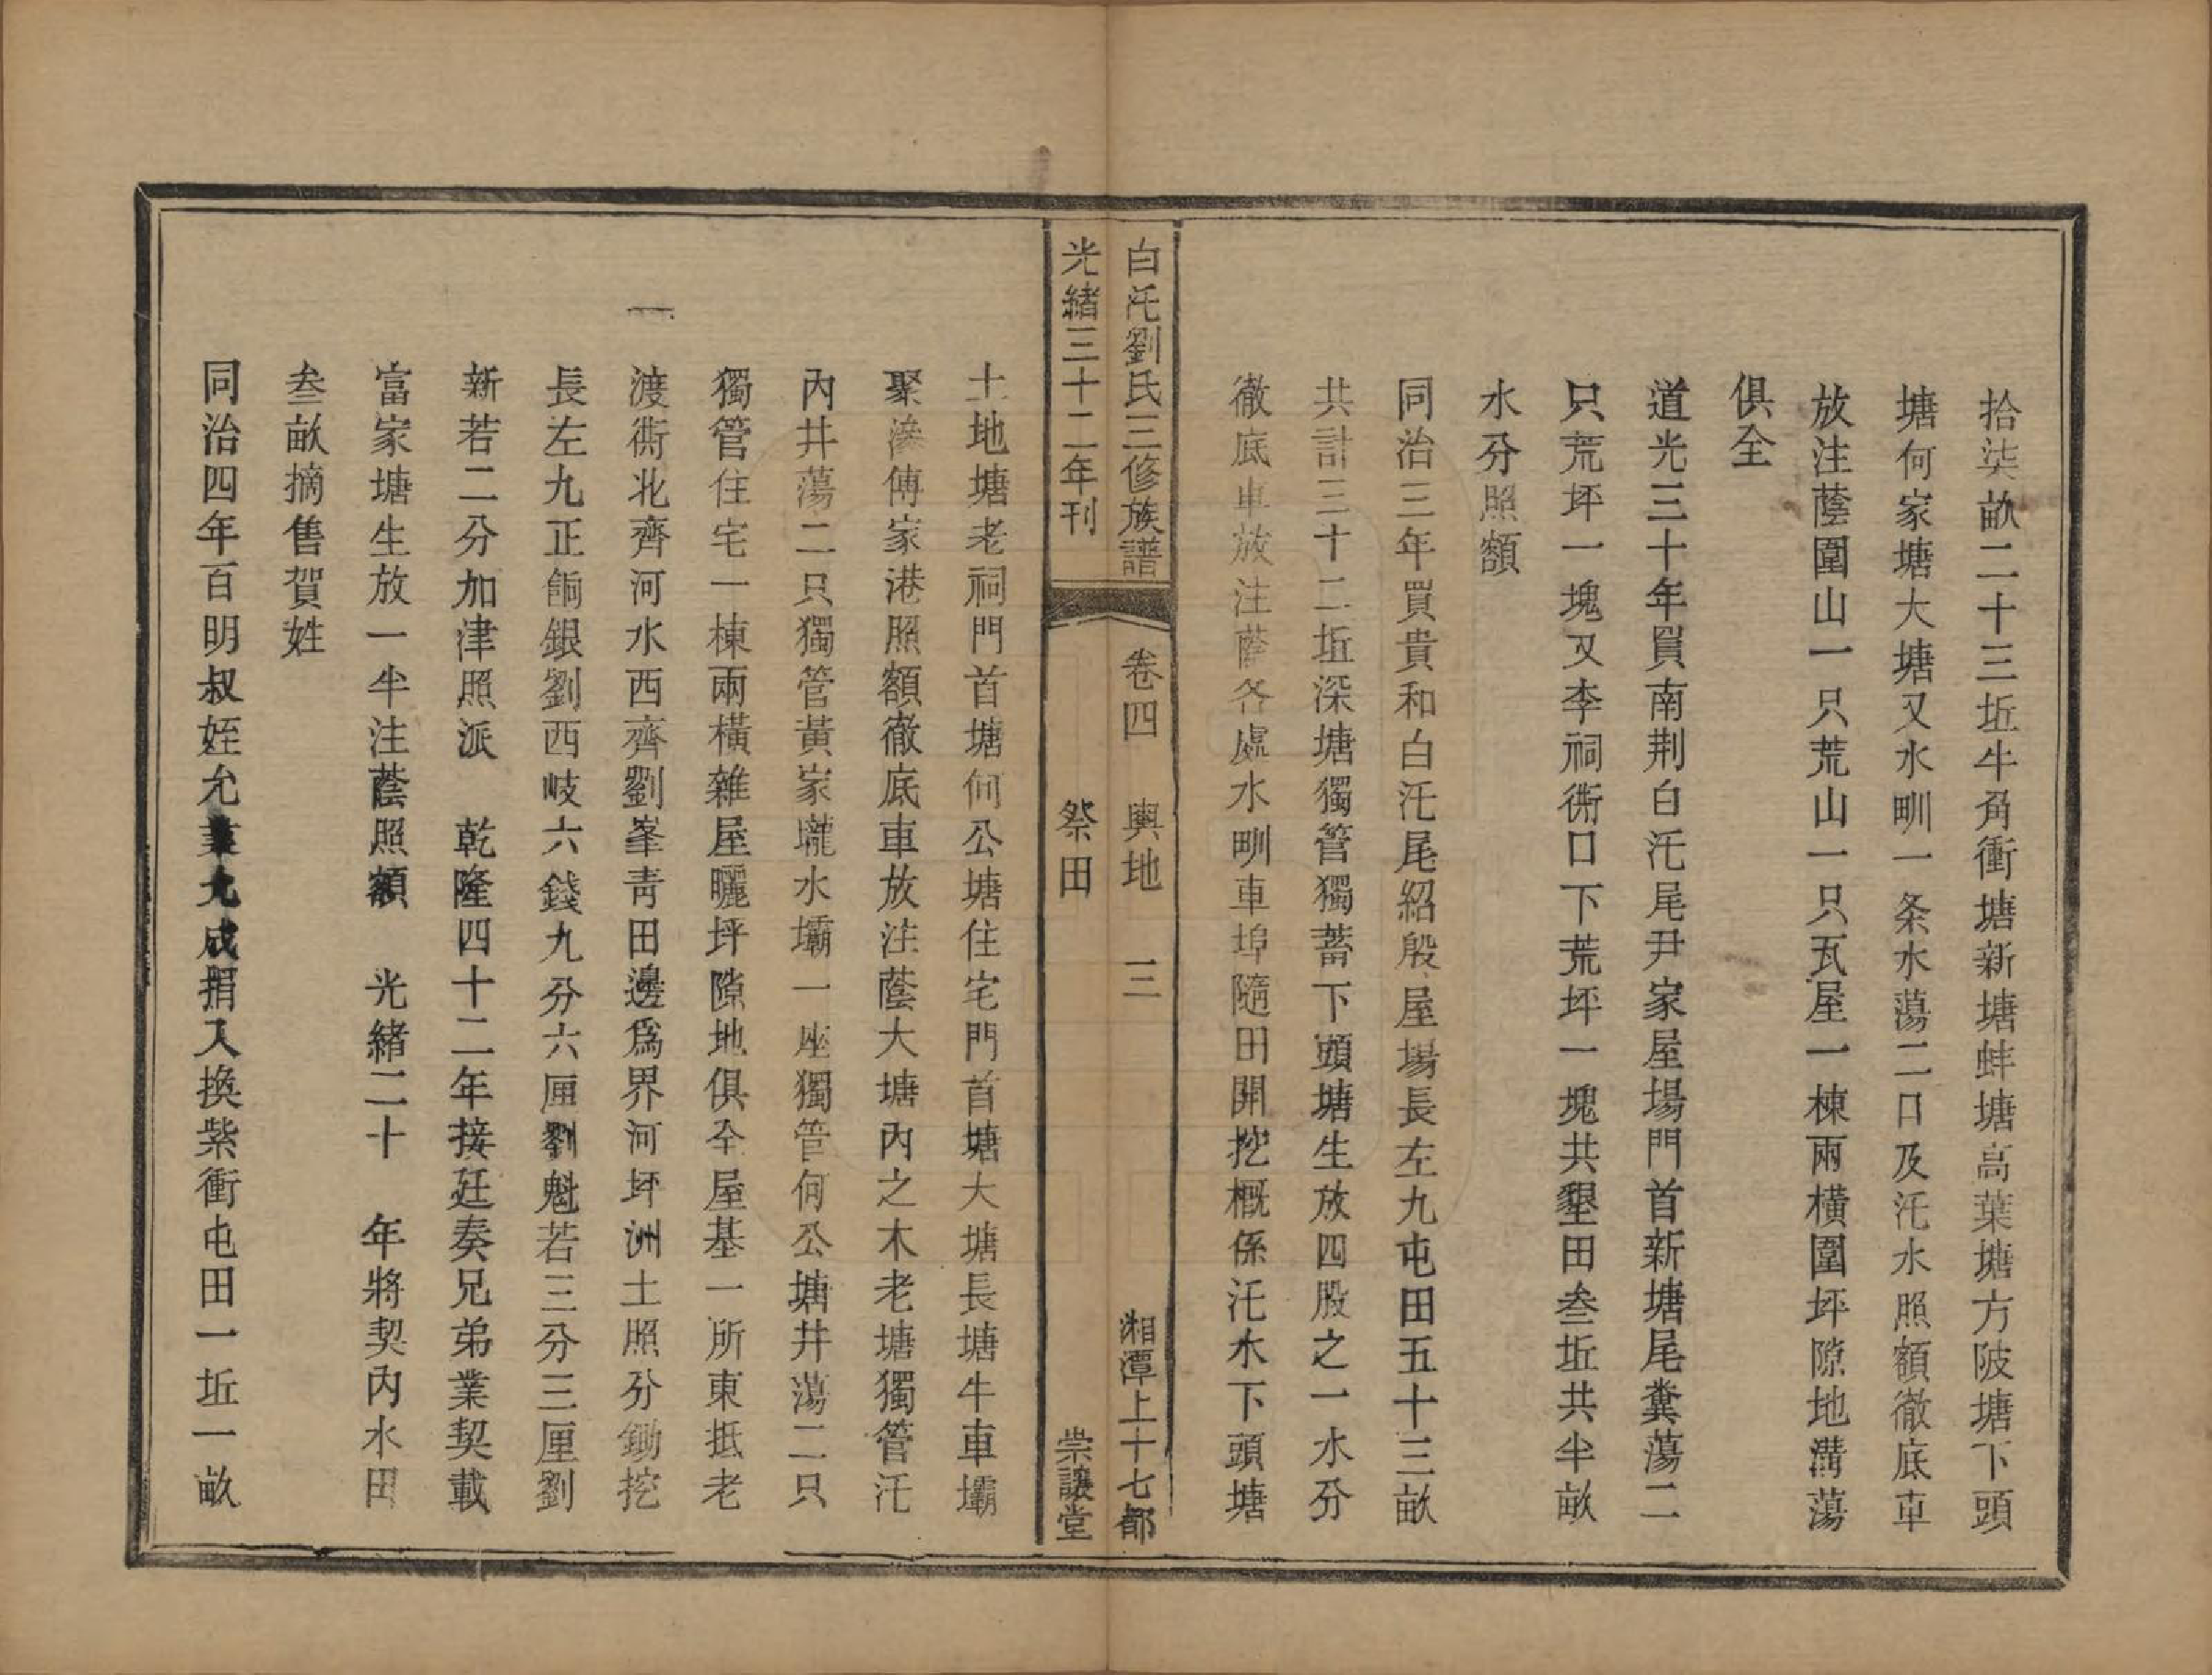 拾柒畝二十三坵牛角衝塘新塘蚌塘高葉塘方陂塘下頭
塘何家塘大塘又水甽一条水蕩二口及汑水照額徹底車
放注蔭圍山一只荒山一只瓦屋一棟兩橫圍坪隙地溝蕩
俱全
道光三十年買南荆白汑尾尹家屋場門首新塘尾糞蕩二
只荒坪一塊又李祠衖口下荒坪一塊共墾田叁坵共半畝
水分照額
同治三年買貴和白汑尾紹殷屋場長左九屯田五十三畝
共計三十二坵深塘獨管獨蓄下頭塘生放四股之一水分
徹底車放注蔭各處水甽車埠隨田開挖概係汑木下頭塘
白汑劉氏三修族譜 卷四 輿地 三 湘潭上十七都
光緒三十二年刊 祭田 崇讓堂
土地塘老祠門首塘何公塘住宅門首塘大塘長塘牛車壩
聚滲傅家港照額徹底車放注蔭大塘內之木老塘獨管汑
內井蕩二只獨管黃家壠水壩一座獨管何公塘井蕩二只
獨管住宅一棟兩橫雜屋曬坪隙地俱全屋基一所東抵老
渡衖北齊河水西齊劉峯靑田邊爲界河坪洲土照分鋤挖
長左九正餉銀劉西岐六錢九分六厘劉魁若三分三厘劉
新若二分加津照派 乾隆四十二年接廷奏兄弟業契載
富家塘生放一半注蔭照額 光緒二十 年將契內水田
叁畝摘售賀姓
同治四年百明叔姪允業允成捐入換紫衝屯田一坵一畝